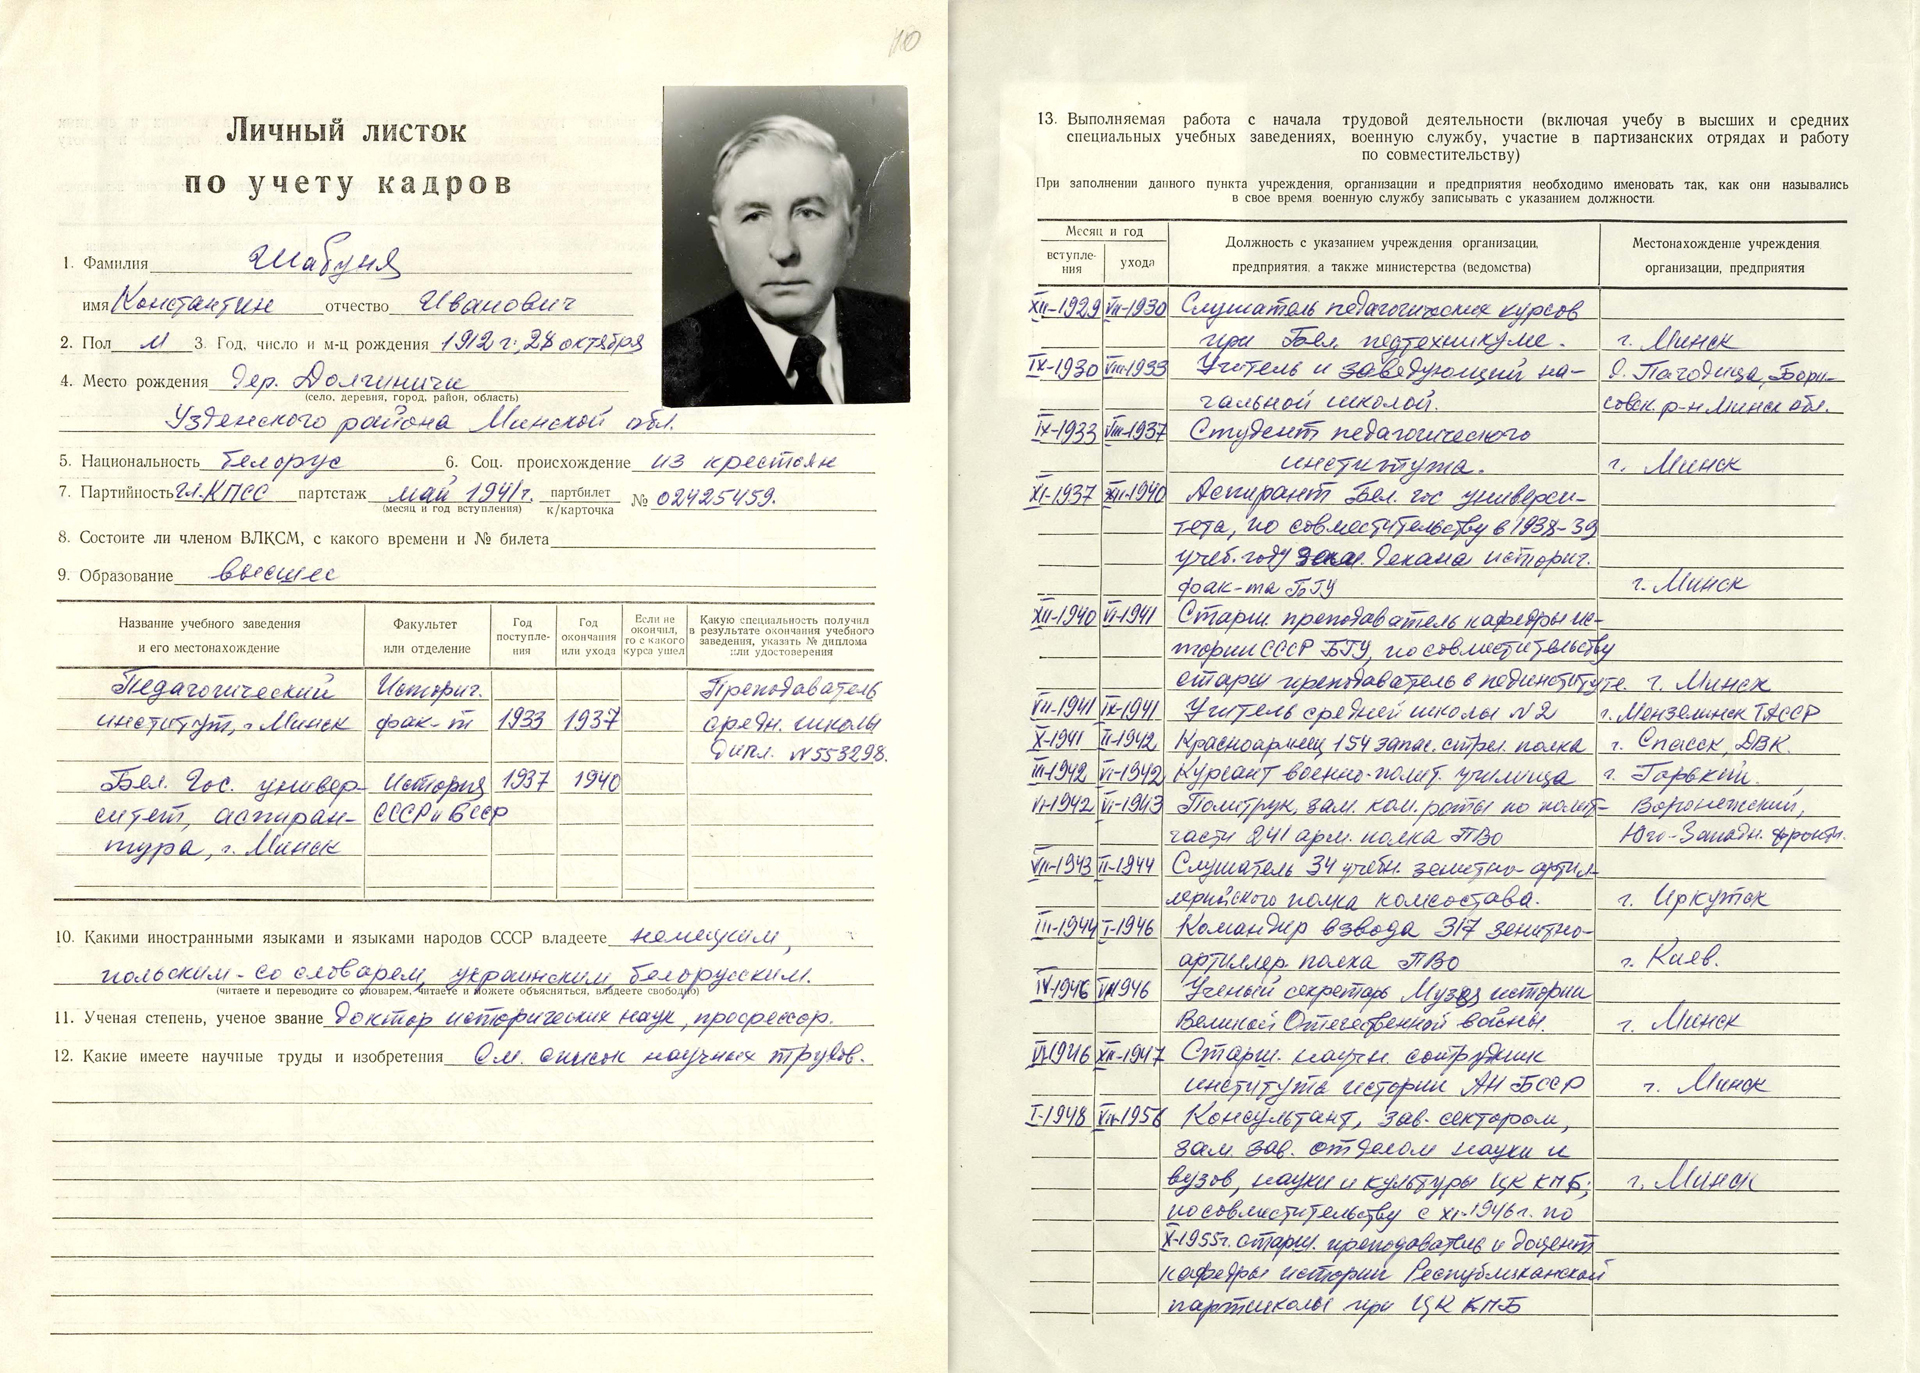 110
Личный листок
по учету кадров
1. Фамилия Шабуня
имя Константин отчество Иванович
2. Пол М 3. Год, число и м-ц рождения 1912 г., 28 октября
4. Место рождения дер. Долгиничи
(село, деревня, город, район, область)
Узденского района Минской обл.
5. Национальность белорус 6. Соц. происхождение из крестьян
7. Партийность чл. КПСС партстаж май 1941 г. партбилет к/карточка № 02425459.
(месяц и год вступления)
8. Состоите ли членом ВЛКСМ, с какого времени и № билета
9. Образование высшее
Название учебного заведения и его местонахождение
Факультет или отделение
Год поступления
Год окончания или ухода
Если не окончил, то с какого курса ушел
Какую специальность получил в результате окончания учебного заведения, указать № диплома или удостоверения
Педагогический Историч. Преподаватель
институт, г. Минск фак-т 1933 1937 средн. школы
Дипл. № 553298.
Бел. Гос. универ- История 1937 1940
ситет, аспиран- СССР и БССР
тура, г. Минск
10. Какими иностранными языками и языками народов СССР владеете немецким,
польским - со словарем, украинским, белорусским.
(читаете и переводите со словарем, читаете и можете объясняться, владеете свободно)
11. Ученая степень, ученое звание доктор исторических наук, профессор.
12. Какие имеете научные труды и изобретения См. список научных трудов.
13. Выполняемая работа с начала трудовой деятельности (включая учебу в высших и средних
специальных учебных заведениях, военную службу, участие в партизанских отрядах и работу
по совместительству)
При заполнении данного пункта учреждения, организации и предприятия необходимо именовать так, как они назывались
в свое время, военную службу записывать с указанием должности.
Месяц и год
вступления ухода
Должность с указанием учреждения организации,
предприятия, а также министерства (ведомства)
Местонахождение учреждения
организации, предприятия
XII-1929 VII-1930 Слушатель педагогических курсов
при Бел. педтехникуме. г. Минск
IX-1930 VIII-1933 Учитель и заведующий на- д. Пагодица, Бори-
чальной школой. совск. р-н Минск обл.
IX-1933 VIII-1937 Студент педагогического
института. г. Минск
XI-1937 XII-1940 Аспирант Бел. гос универси-
тета, по совместительству в 1938-39
учеб. году зам. декана историч.
фак-та БГУ г. Минск
XII-1940 VI-1941 Старш. преподаватель кафедры ис-
тории СССР БГУ, по совместительству
старш преподаватель в пединституте. г. Минск
VII-1941 IX-1941 Учитель средней школы № 2 г. Мензелинск ТАССР
X-1941 II-1942 Красноармеец 154 запас. стрел. полка г. Спасск, ДВК.
III-1942 VI-1942 Курсант военно-полит. училища г. Горький.
VI-1942 VI-1943 Политрук, зам. ком. роты по полит- Воронежский,
части 241 арм. полка ПВО Юго-Западн. фронты.
VII-1943 II-1944 Слушатель 34 учебн. зенитно-артил-
лерийского полка комсостава. г. Иркутск
III-1944 I-1946 Командир взвода 317 зенитно-
артиллер. полка ПВО г. Киев.
IV-1946 VI-1946 Ученый секретарь Музея истории
Великой Отечественной войны. г. Минск
VI-1946 XII-1947 Старш. научн. сотрудник
института истории АН БССР г. Минск
I-1948 VII-1956 Консультант, зав. сектором,
зам. зав. отделом науки и
вузов, науки и культуры ЦК КПБ; г. Минск
по совместительству с XI-1946 г. по
X-1955 г. старш. преподаватель и доцент
кафедры истории Республиканской
партшколы при ЦК КПБ